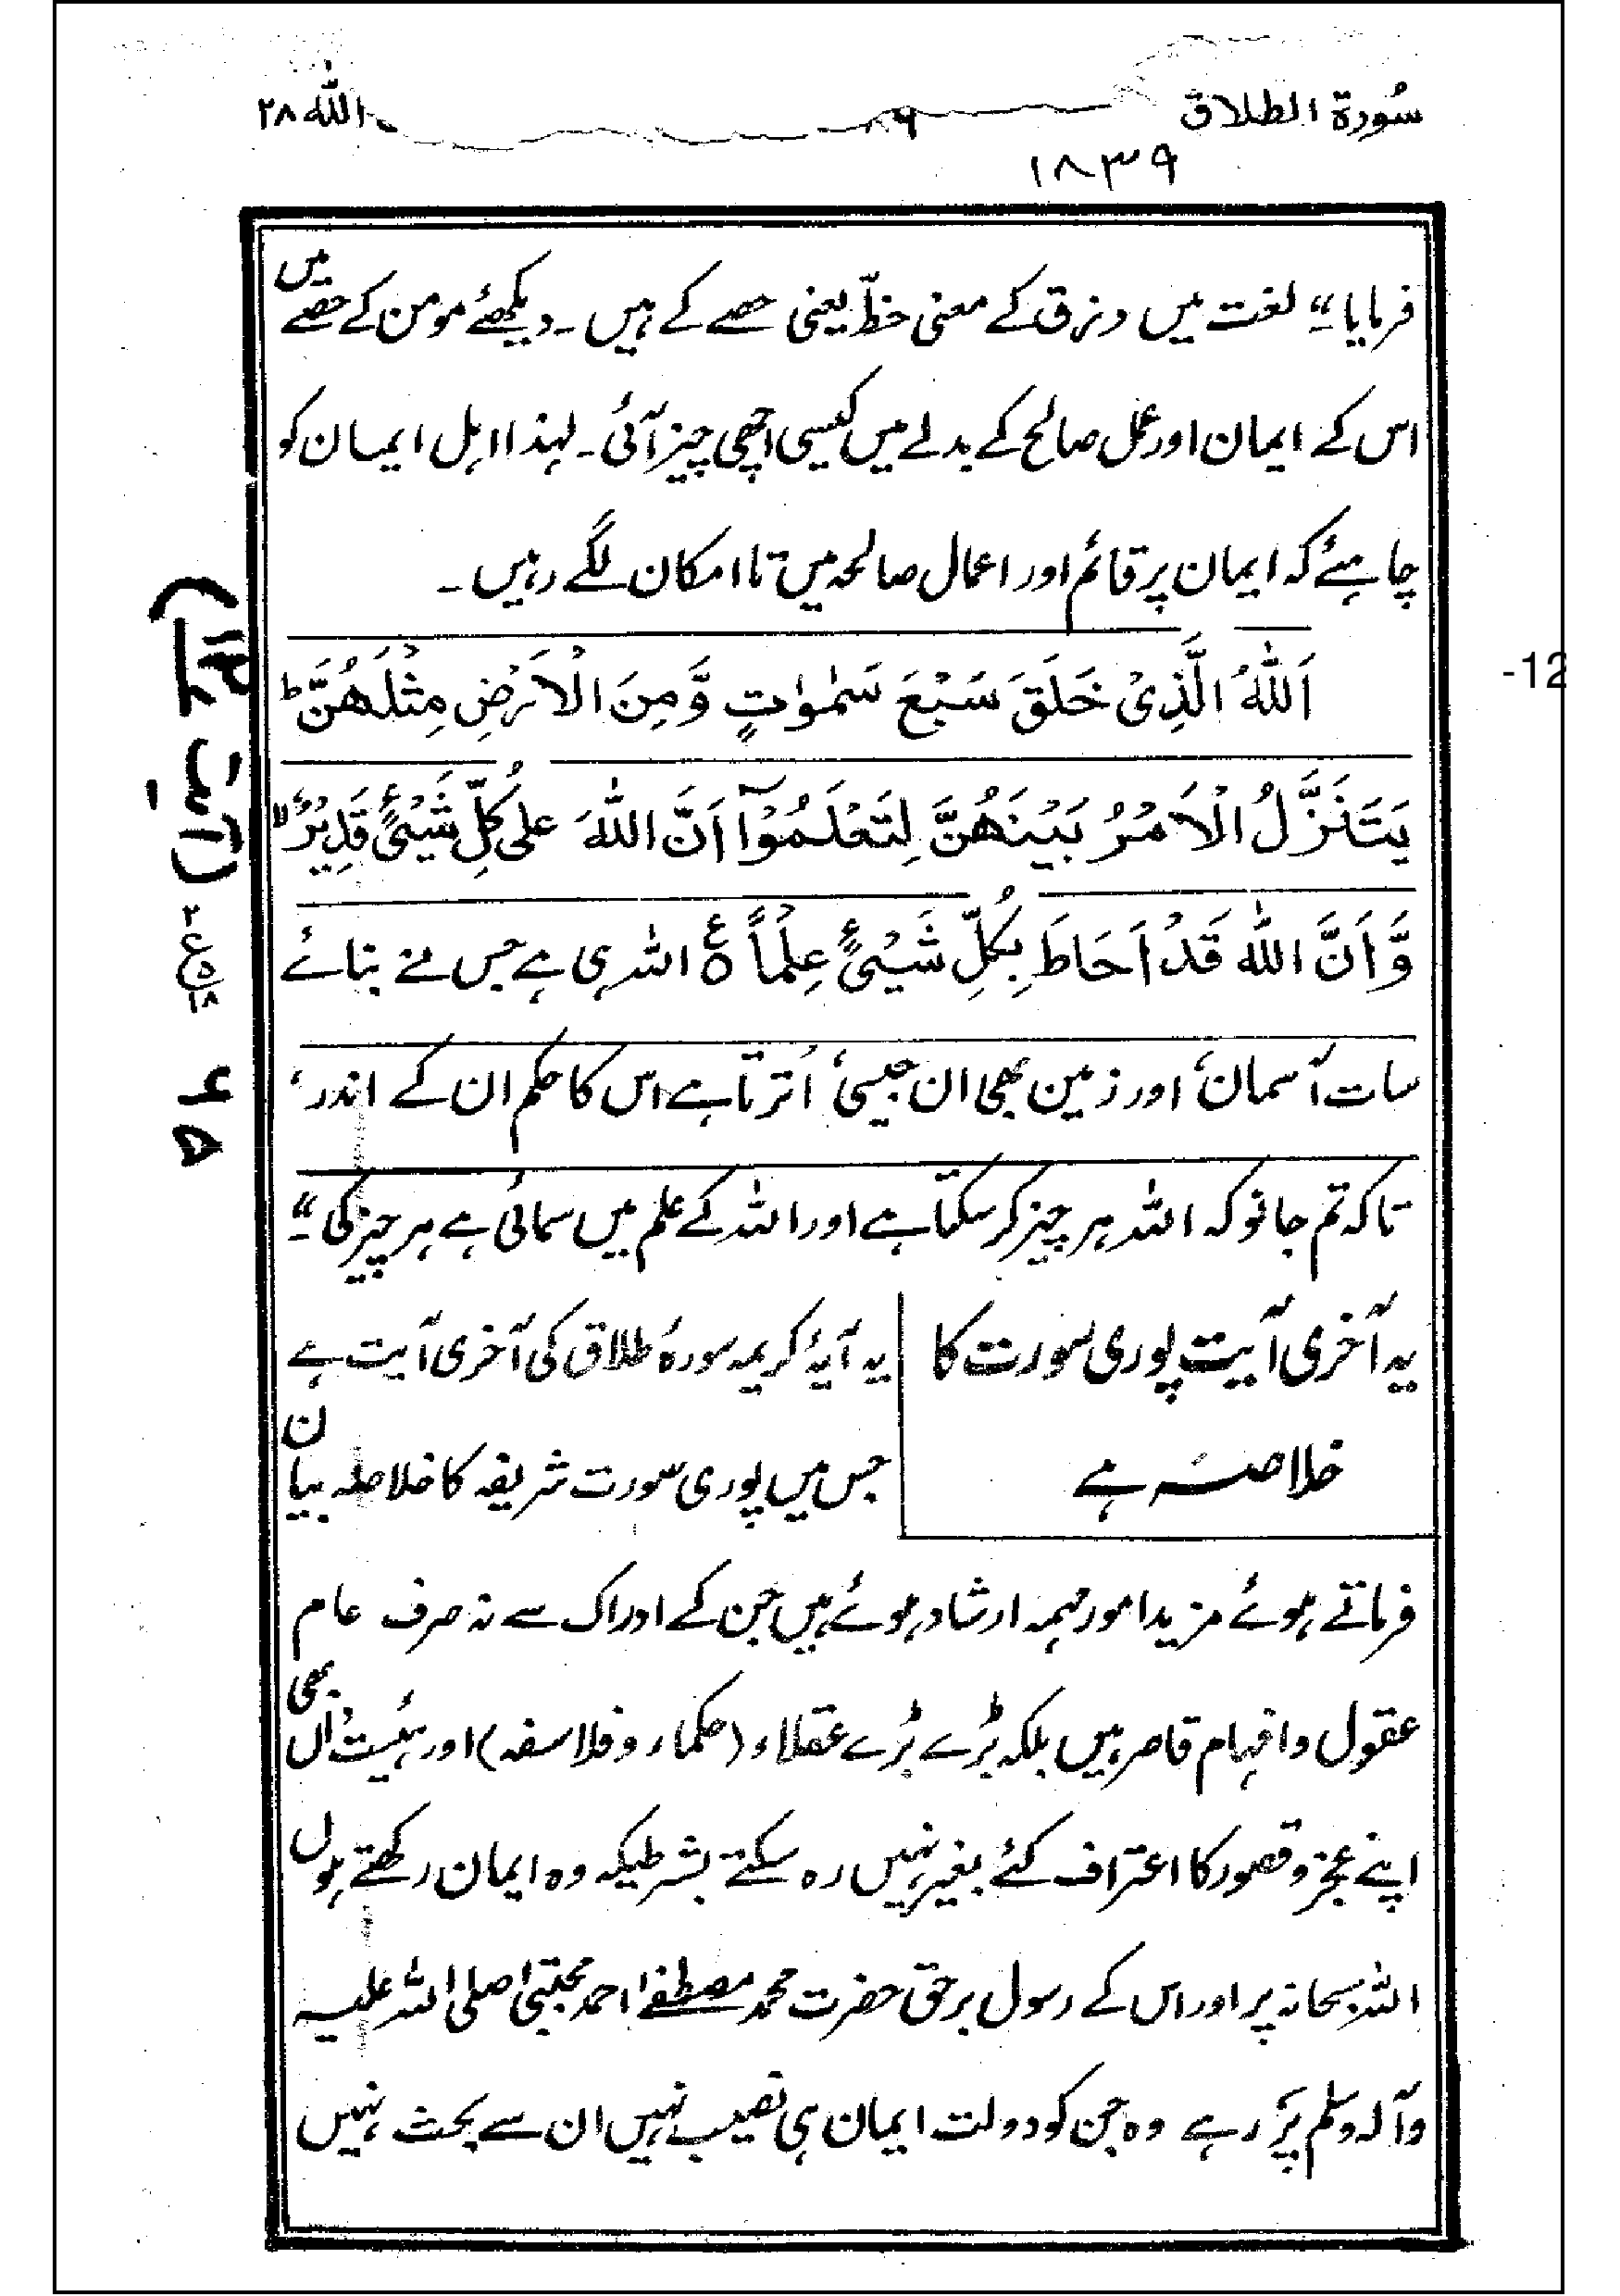 سُورة الطلاق
۸۹
اللّٰه ۲۸
۱۸۳۹
فرمایا“ لغت میں رزق کے معنی حظّ یعنی حصے کے ہیں ۔ دیکھئے مومن کے حصّے میں
اس کے ایمان اور عمل صالح کے بدلے میں کیسی اچھی چیز آئی ۔ لہذا اہل ایمان کو
چاہئے کہ ایمان پر قائم اور اعمال صالحہ میں تا امکان لگے رہیں ۔
اَللّٰهُ الَّذِیْ خَلَقَ سَبْعَ سَمٰوٰتٍ وَّمِنَ الْاَرْضِ مِثْلَهُنَّ ؕ
یَتَنَزَّلُ الْاَمْرُ بَیْنَهُنَّ لِتَعْلَمُوْۤا اَنَّ اللّٰهَ عَلٰی كُلِّ شَیْئٍ قَدِیْرٌ ۙ
وَّاَنَّ اللّٰهَ قَدْ اَحَاطَ بِكُلِّ شَیْئٍ عِلْمًا ۠ اللہ ہی ہے جس نے بنائے
سات آسمان، اور زمین بھی ان جیسی، اُترتا ہے اس کا حکم ان کے اندر،
تاکہ تم جانو کہ اللہ ہر چیز کر سکتا ہے اور اللہ کے علم میں سمائی ہے ہر چیز کی“۔
یہ آخری آیت پوری سورت کا
خلاصہ ہے
یہ آیۂ کریمہ سورۂ طلاق کی آخری آیت ہے
جس میں پوری سورت شریفہ کا خلاصہ بیان
فرماتے ہوئے مزید امور مہمہ ارشاد ہوئے ہیں جن کے ادراک سے نہ صرف عام
عقول و افہام قاصر ہیں بلکہ بڑے بڑے عقلاء (حکماء و فلاسفہ) اور ہیئت داں بھی
اپنے عجز و قصور کا اعتراف کئے بغیر نہیں رہ سکتے بشرطیکہ وہ ایمان رکھتے ہوں
اللہ سبحانہ پر اور اس کے رسول برحق حضرت محمد مصطفےٰ احمد مجتبیٰ صلی اللہ علیہ
وآلہ وسلم پر، رہے وہ جن کو دولت ایمان ہی نصیب نہیں ان سے بحث نہیں
(آیت ۱۲)
۲
ع
۵
۱۸
۶۵
-12